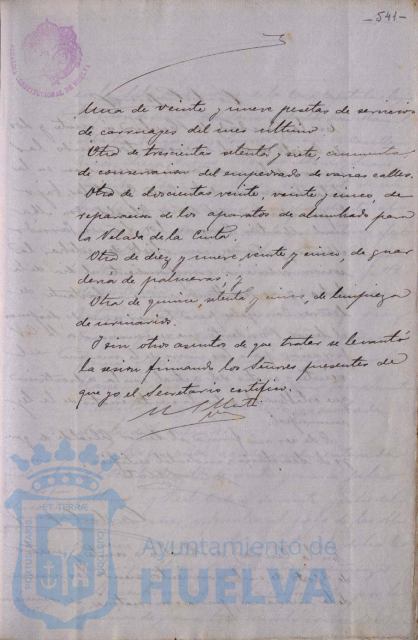 - 541 -
Una de veinte y nueve pesetas de servicios
de carruages del mes último.
Otra de trescientas setenta y siete, cincuenta,
de conservacion del empedrado de varias calles.
Otra de doscientas veinte, veinte y cinco, de
reparacion de los aparatos de alumbrado para
la Velada de la Cinta.
Otra de diez y nueve, veinte y cinco, de guar
deria de palmeras; y
Otra de quince, setenta y cinco, de limpieza
de urinarios.
Y sin otros asuntos de que tratar se levantó
la sesion firmando los Señores presentes de
que yo el Secretario certifico.
ET TERRÆ
PORTUS MARIS
CUSTODIA
Ayuntamiento de
HUELVA